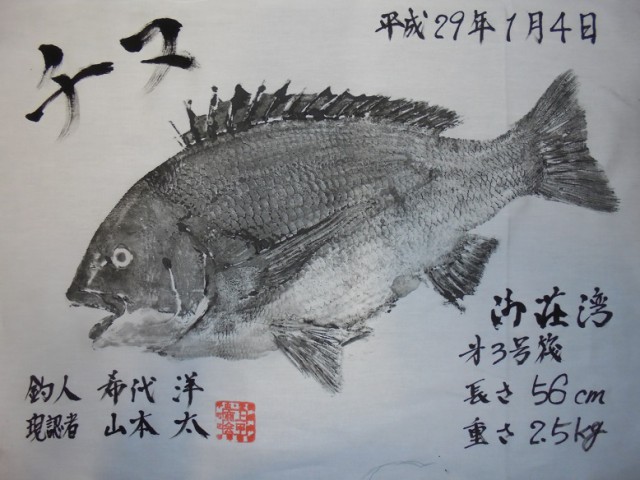 チヌ
平成29年1月4日
御荘湾
才3号筏
長さ 56cm
重さ 2.5kg
釣人 希代 洋
現認者 山本 太